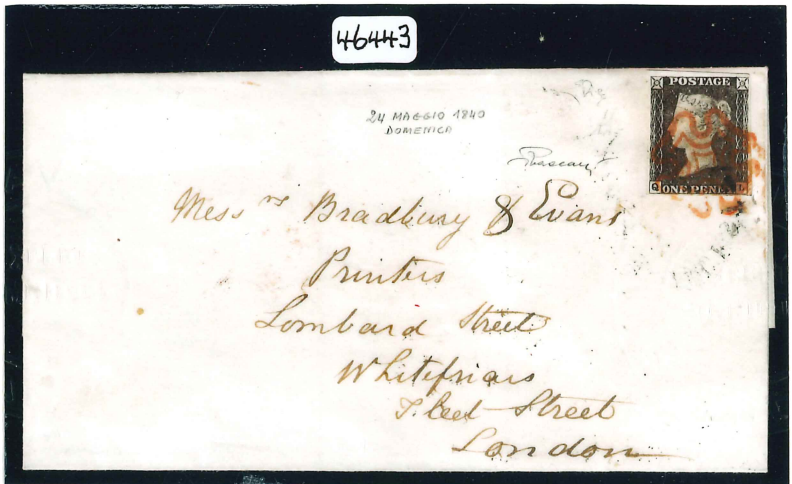 46443
POSTAGE
24 MAGGIO 1840
DOMENICA
ONE PENNY
Mess rs Bradbury & Evans
Printers
Lombard Street
Whitefriars
Fleet Street
London